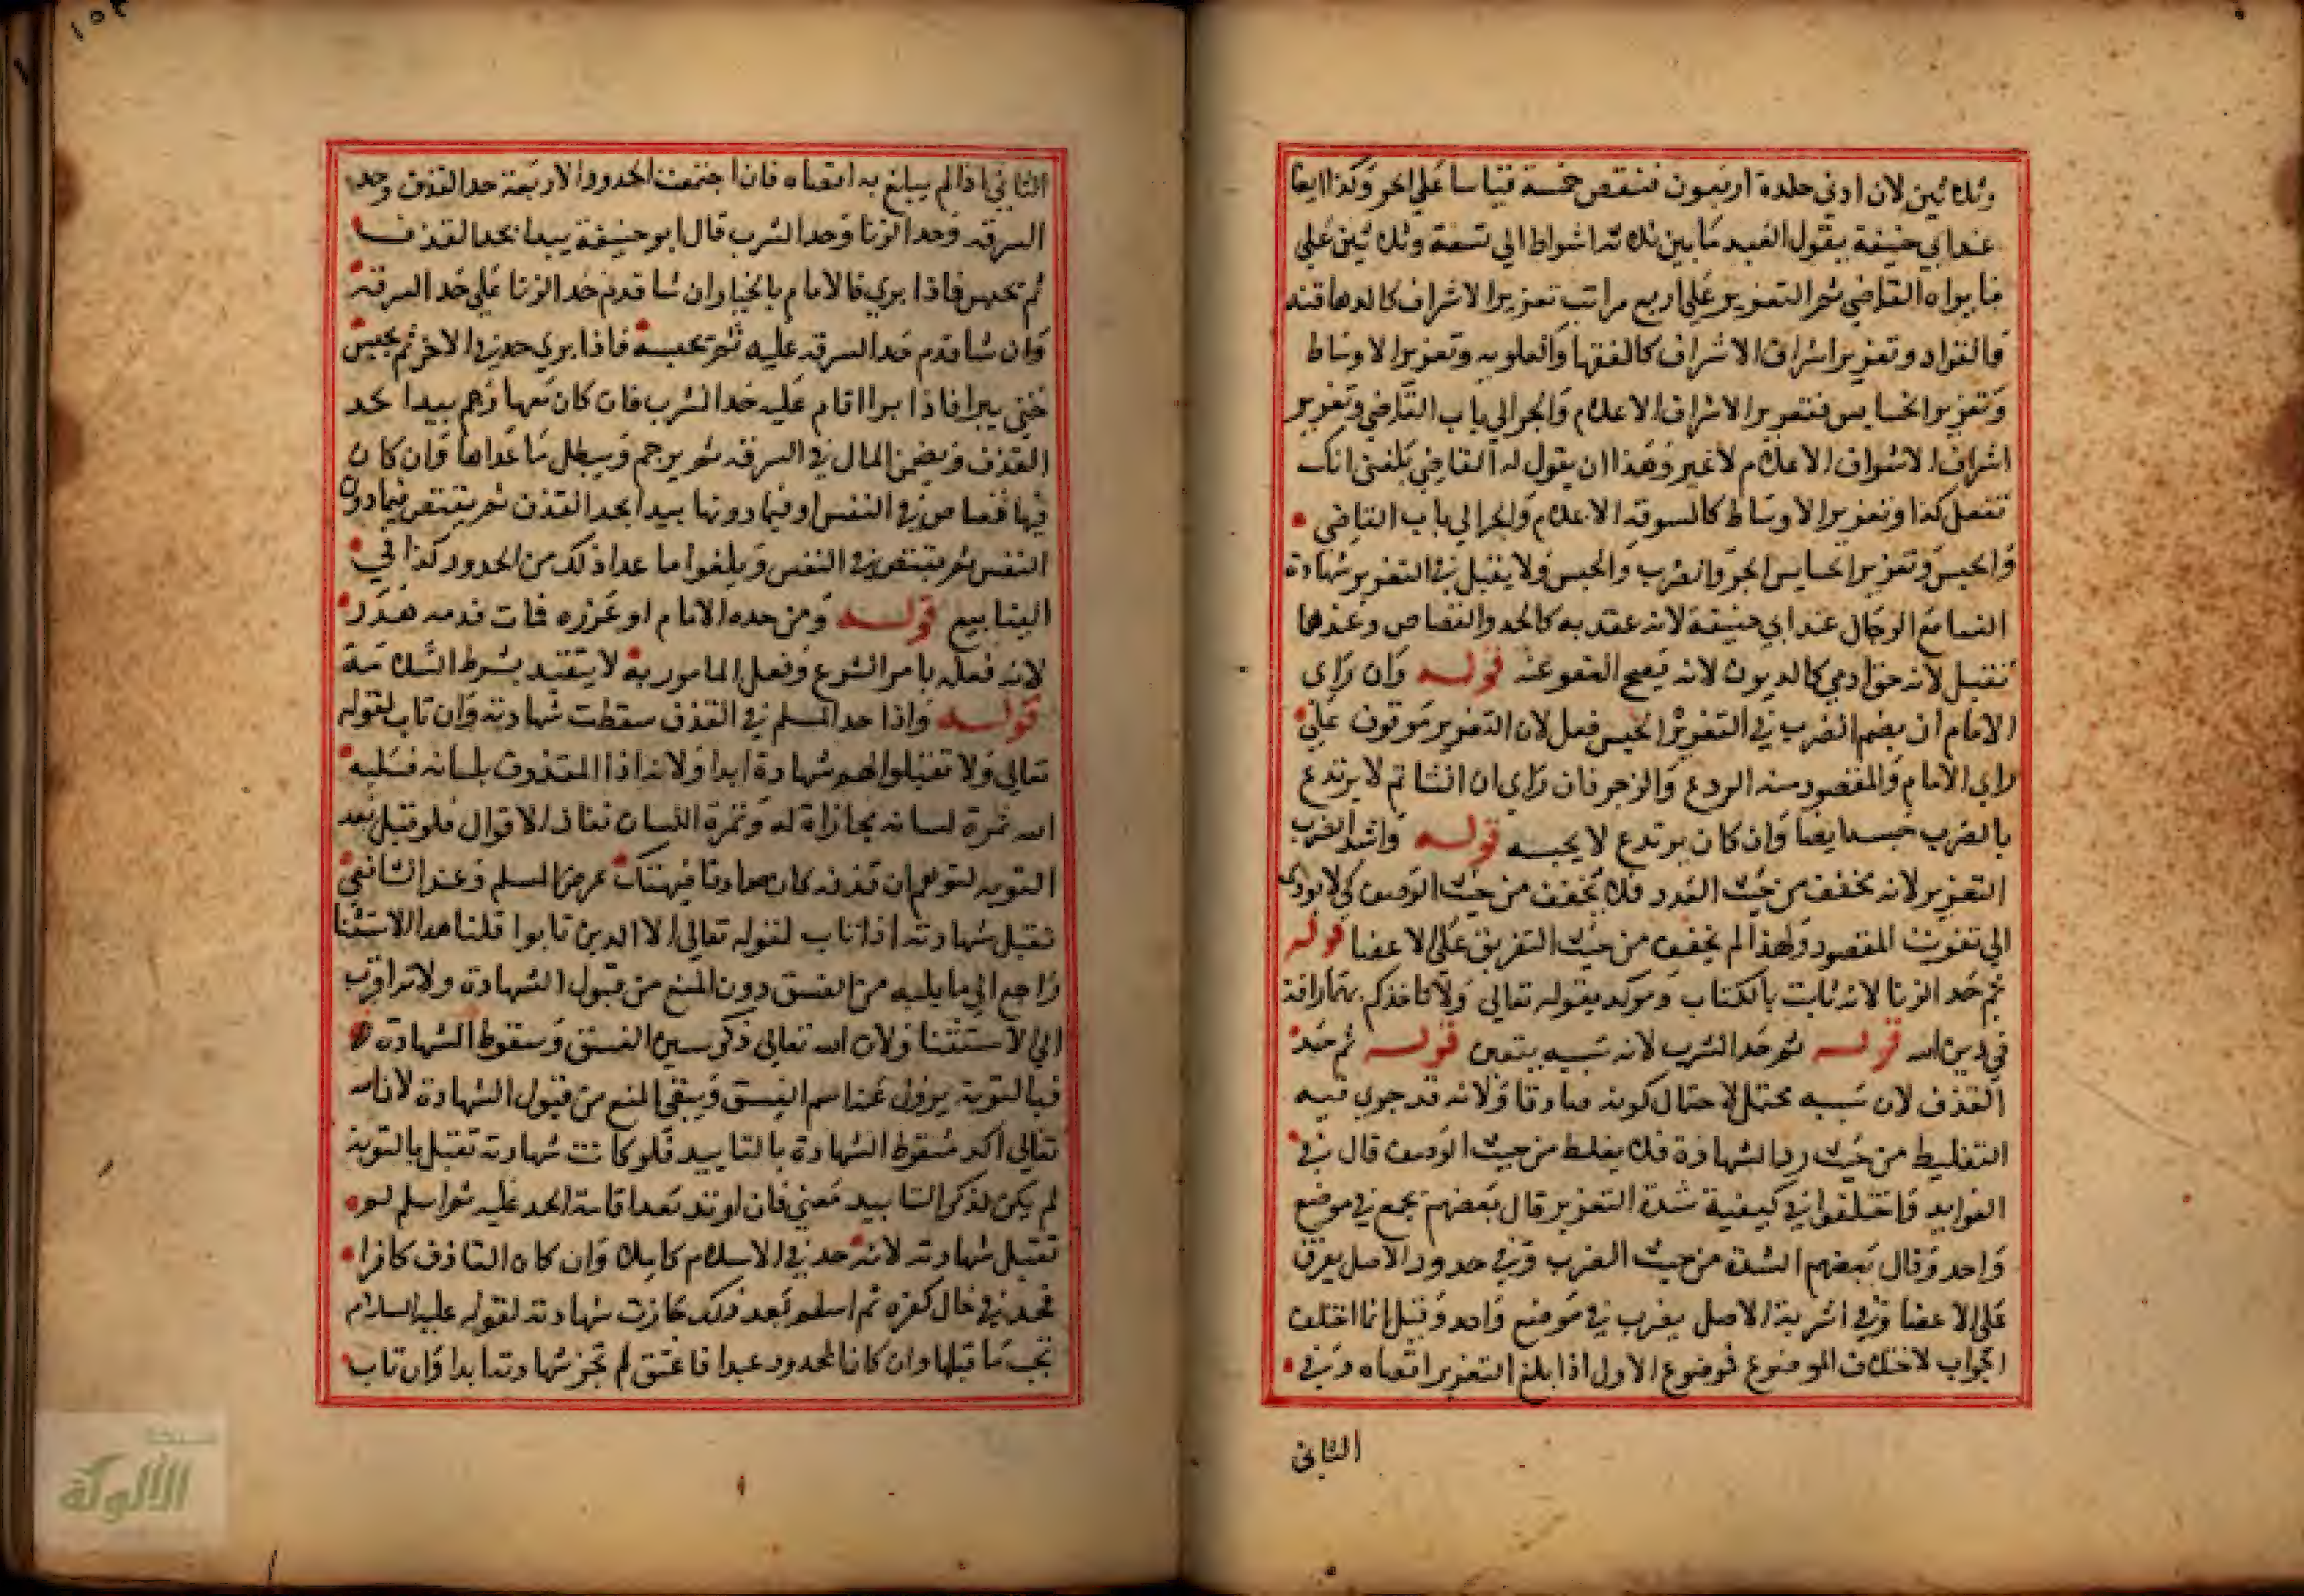 وثلاثين لان ادني حلده اربعون فننقص خمسة قياسا علي الحر وكذا ايضا
عند ابي حنيفة يقول العبد ما بين ثلاثه اشواط الي تسعة وثلاثين علي
ما يراه القاضي ثم التعزير علي اربع مراتب تعزيرا لاشراف كالدهاقنه
والقواد وتعزير اشراف الاشراف كالفقها والعلويه وتعزير الاوساط
وتعزير الخسايس فتعزير الاشراف الاعلام والجر الي باب القاضي وتعزير
اشراف الاشراف الاعلام لا غير وهذا ان يقول له القاضي بلغني انك
تفعل كذا وتعزير الاوساط كالسوقه الاعلام والجر الي باب القاضي
والحبس وتعزير الخسايس الجر والضرب والحبس ولا يقبل في التعزير شهادة
النسا مع الرجال عند ابي حنيفة لانه عقد به كالحد والقصاص وعندهما
تقبل لانه حق ادمي كالديون لانه يصح العفو عنه قوله وان راي
الامام ان يضم الضرب في التعزير الحبس فعل لان التعزير موقوف علي
راي الامام والمقصود منه الردع والزجر فان راي ان الشاتم لا يرتدع
بالضرب حبسه ايضا وان كان يرتدع لا يحبسه قوله واشد الضرب
التعزير لانه مخفف من حيث العدد فلا يخفف من حيث الوصف كي لا يودي
الي تفويت المقصود ولهذا لم يخفف من حيث التفريق علي الاعضا قوله
ثم حد الزنا لانه ثابت بالكتاب وموكد بقوله تعالي ولا تاخذكم بهما رافة
في دين الله قوله ثم حد الشرب لانه سببه بيقين قوله ثم حد
القذف لان سببه محتمل لاحتمال كونه صادقا ولانه قد جري فيه
التغليظ من حيث رد الشهادة فلا يغلظ من حيث الوصف قال في
الفوايد فاختلفوا في كيفية شدة التعزير قال بعضهم يجمع في موضع
واحد وقال بعضهم الشدة من حيث الضرب وفي حدود الاصل يفرق
علي الاعضا وفي اشربة الاصل يضرب في موضع واحد وقيل انما اختلف
الجواب لاختلاف الموضوع فموضوع الاول اذا بلغ التعزير اقصاه وفي
الثاني
الثاني اذا لم يبلغ به اقصاه فان اجتمعت الحدود الاربعة حد القذف وحد
السرقه وحد الزنا وحد الشرب قال ابو حنيفة يبدا بحد القذف
ثم يحبس فاذا بري فالامام بالخيار ان شا قدم حد الزنا علي حد السرقة
وان شا قدم حد السرقه عليه ثم يحبسه فاذا بري حد في الاخر ثم يحبس
حتي يبرا فاذا برا اقام عليه حد الشرب فان كان معها رجم يبدا بحد
القذف ويضمن المال في السرقه ثم يرجم ويبطل ما عداها وان كان
فيها قصاص في النفس او فيما دونها يبدا بحد القذف ثم يقتص فيما دون
النفس ثم يقتص في النفس ويلغوا ما عدا ذلك من الحدود كذا في
الينابيع قوله ومن حده الامام او عزره فمات فدمه هدر
لانه فعله بامر الشرع وفعل المامور به لا يتقيد بشرط السلامة
قوله واذا حد المسلم في القذف سقطت شهادته وان تاب لقوله
تعالي ولا تقبلوا لهم شهادة ابدا ولانه اذا المقذوف بلسانه فسلبه
الله ثمرة لسانه مجازاة له وثمرة اللسان نفاذ الاقوال فلو قبل بعد
التوبه لتوهم ان قذفه كان صادقا فيهتك عرض المسلم وعند الشافعي
تقبل شهادته اذا تاب لقوله تعالي الا الذين تابوا قلنا هذا الاستثنا
راجع الي ما يليه من الفسق دون المنع من قبول الشهادة ولانه اقرب
الي الاستثنا ولان الله تعالي ذكر سببين الفسق وسقوط الشهادة
فبالتوبه يزول عنه اسم الفسق ويبقي المنع من قبول الشهادة لان الله
تعالي اكد سقوط الشهادة بالتابيد فلو كانت شهادته تقبل بالتوبه
لم يكن لذكر التابيد معني فان ارتد بعد اقامة الحد عليه ثم اسلم لم
تقبل شهادته لانه حد في الاسلام كاملا وان كان القاذف كافرا
فحد في حال كفره ثم اسلم بعد ذلك جازت شهادته لقوله عليه السلام
تجب ما قبلها وان كان المحدود عبدا فاعتق لم تجز شهادته ابدا وان تاب
شبكة
الألوكة